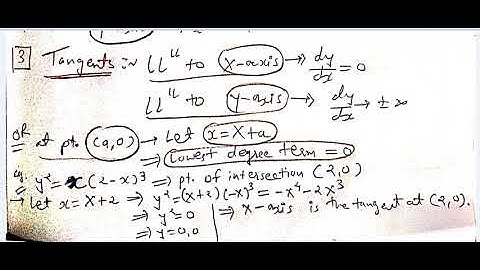 3 Tangents is LL^u to x-axis → dy/dx = 0
LL^u to y-axis → dy/dx → ± ∞
OR at pt. (a,0) → Let x = X+a
⇒ Lowest degree term = 0
eg. y² = x(2-x)³ ⇒ pt. of intersection (2,0)
→ Let x = X+2 ⇒ y² = (X+2)(-X)³ = -X⁴-2X³
⇒ y² = 0 ⇒ X-axis is the tangent at (2,0).
⇒ y = 0,0